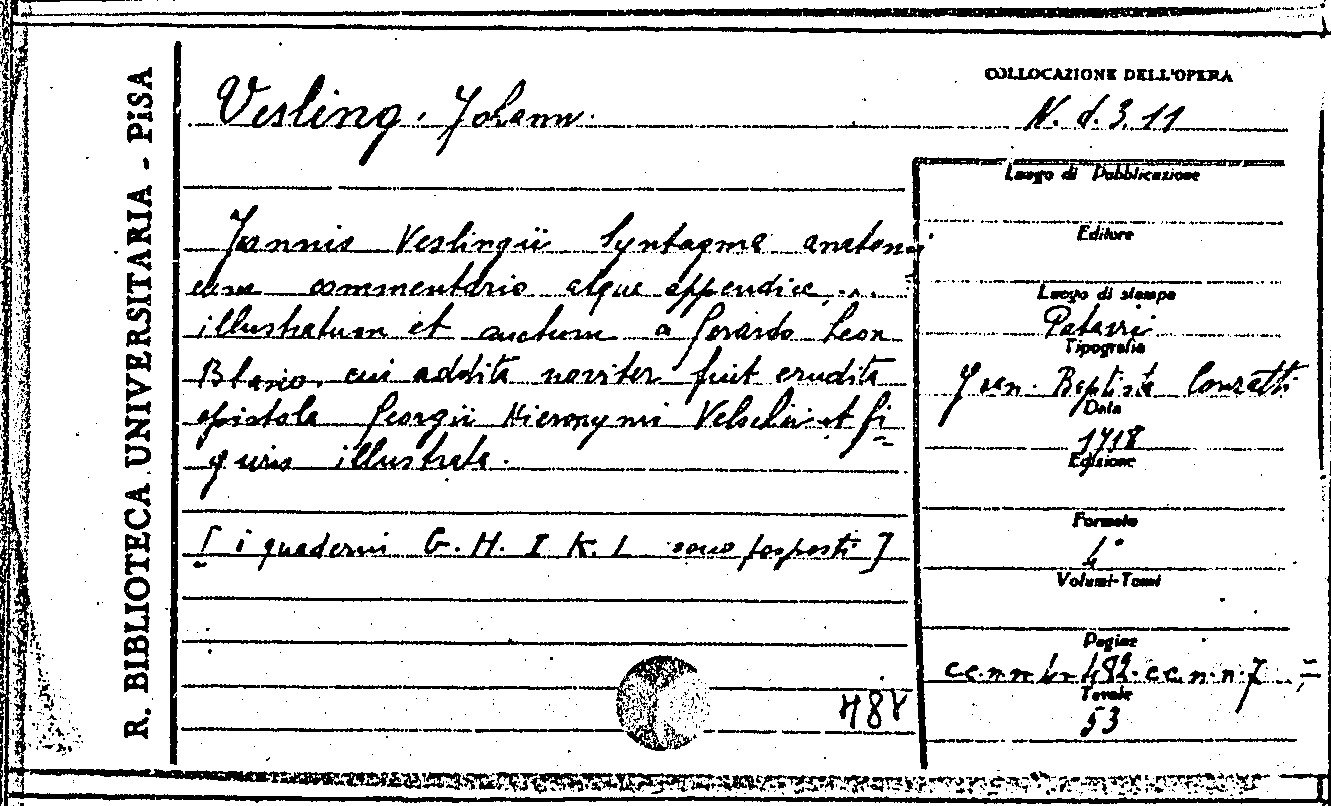 R. BIBLIOTECA UNIVERSITARIA - PISA
COLLOCAZIONE DELL'OPERA
N. d. 3. 11
Vesling. Johann.
Joannis Veslingii Syntagma anatomi
cum commentario atque appendice ...
illustratum et auctum a Gerardo Leon
Blasio, cui addita noviter fuit erudita
epistola Georgii Hieronymi et fi
guris illustrata.
[i quaderni G. H. I K. L sono posposti]
Luogo di Pubblicazione
Editore
Luogo di stampa
Patavii
Tipografia
Joan. Baptista Conzatti
Data
1718
Edizione
Formato
4°
Volumi-Tomi
Pagine
cc.nn 4 482. cc.n.n. 7
Tavole
53